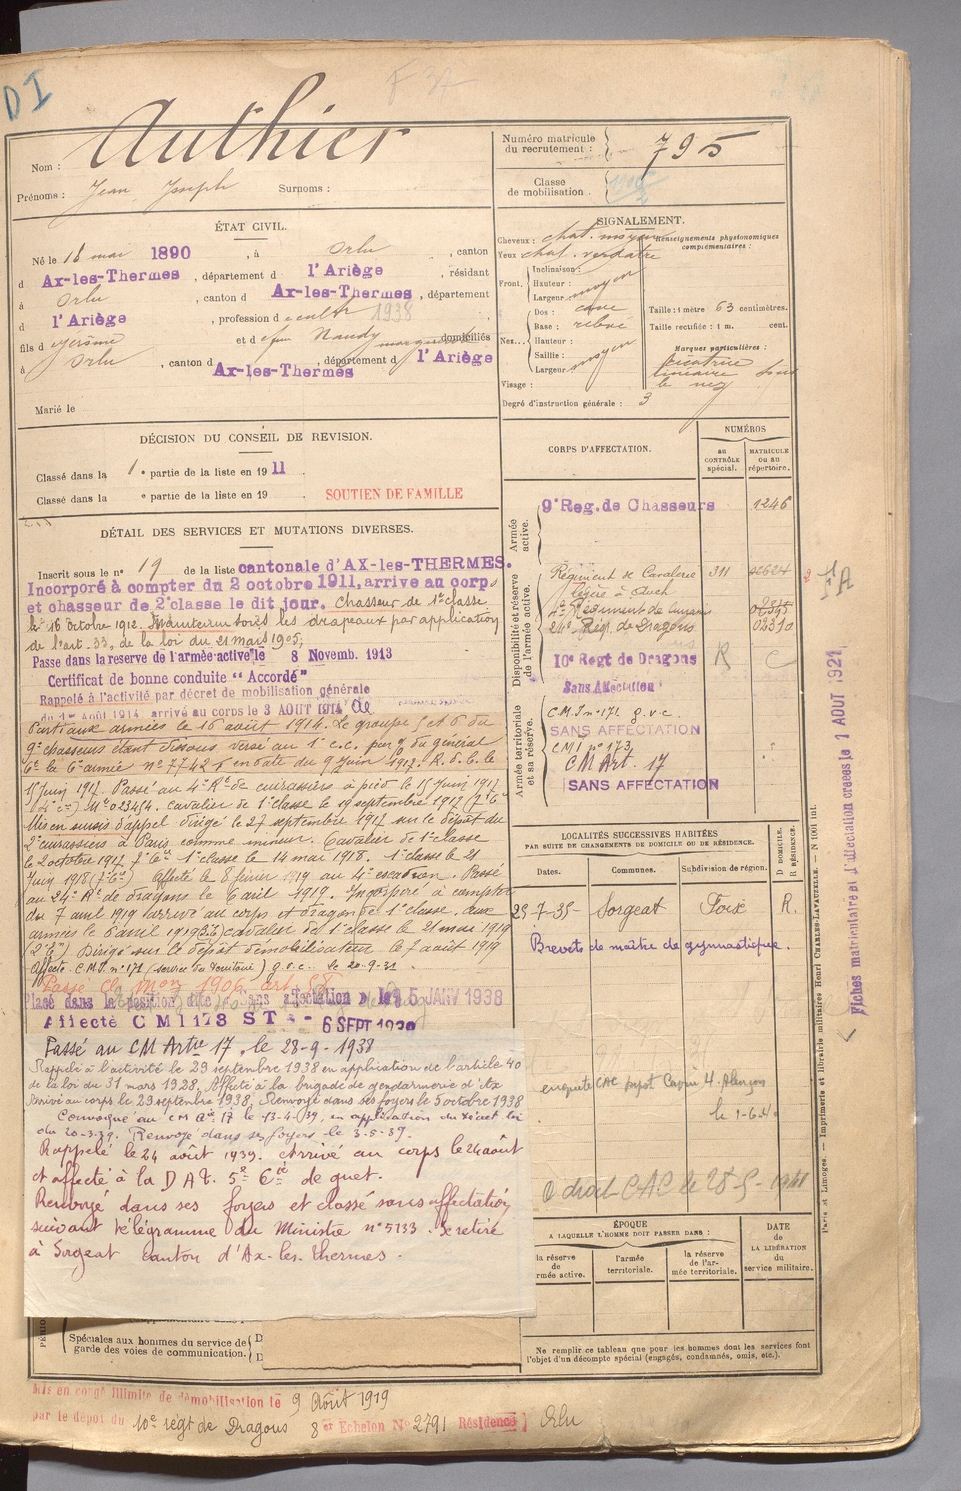 DI
F 37
Nom : Authier
Prénoms : Jean Joseph Surnoms :
Numéro matricule du recrutement : 795
Classe de mobilisation
ÉTAT CIVIL.
Né le 16 mai 1890, à Orlu, canton
d Ax-les-Thermes, département d l'Ariège, résidant
à Orlu, canton d Ax-les-Thermes, département
d l'Ariège, profession de cultr 1938
fils d Jérôme et d feu Naudy domiciliés
à Orlu, canton d Ax-les-Thermes, département d l'Ariège
Marié le
SIGNALEMENT.
Cheveux : chat. moyen
Yeux chat. verdâtre
Renseignements physionomiques complémentaires :
Front. Inclinaison :
Hauteur : moyen
Largeur
Nez... Dos : cave
Base : relevé
Hauteur :
Saillie : moyen
Largeur
Visage :
Taille : 1 mètre 63 centimètres.
Taille rectifiée : 1 m. cent.
Marques particulières :
Cicatrice linéaire sous le nez
Degré d'instruction générale : 3
DÉCISION DU CONSEIL DE REVISION.
Classé dans la 1e partie de la liste en 1911
Classé dans la e partie de la liste en 19
SOUTIEN DE FAMILLE
DÉTAIL DES SERVICES ET MUTATIONS DIVERSES.
Inscrit sous le n° 19 de la liste cantonale d'AX-les-THERMES.
Incorporé à compter du 2 octobre 1911, arrive au corps
et chasseur de 2e classe le dit jour. Chasseur de 1e classe
le 16 octobre 1912. Maintenu sous les drapeaux par application
de l'art. 33, de la loi du 21 mars 1905,
Passe dans la reserve de l'armée active le 8 Novemb. 1913
Certificat de bonne conduite "Accordé"
Rappelé à l'activité par décret de mobilisation générale
du 1er Août 1914 arrivé au corps le 3 AOUT 1914
Parti aux armées le 16 août 1914. Le groupe 5 et 6 du
9e chasseurs étant dissous versé au 1e c.c. par % du général
Ct la 6e armée n° 7742 en date du 9 Juin 1917. R. d. l. le
15 Juin 1917. Passé au 4e Rt de cuirassiers à pied le 15 Juin 1917
Mle 023414. cavalier de 1e classe le 19 septembre 1917
Mis en sursis d'appel dirigé le 27 septembre 1917 sur le dépôt du
2e cuirassiers à Paris comme mineur. Cavalier de 1e classe
le 2 octobre 1917. 1e classe le 14 mai 1918. 1e classe le 21
Juin 1918. Affecté le 8 février 1919 au 4e escadron. Passé
au 24e Rt de dragons le 6 avril 1919. Incorporé à compter
du 7 avril 1919 arrivé au corps et dragon de 1e classe. aux
armées le 6 avril 1919 cavalier de 1e classe le 21 mai 1919
Dirigé sur le dépôt démobilisateur le 7 août 1919
Affecté C.M.I. n° 171 (service du territoire) g.v.c. le 20-9-31
Passé cl. mob 1906 art. 58
Placé dans la position dite « sans affectation » le 15 JANV 1938
Affecté CMI 173 ST - 6 SEPT 1938
Passé au CM Artie 17, le 28-9-1938
Rappelé à l'activité le 29 septembre 1938 en application de l'article 40
de la loi du 31 mars 1928. Affecté à la brigade de gendarmerie d'Ax
Arrivé au corps le 29 septembre 1938. Renvoyé dans ses foyers le 5 octobre 1938
Convoqué au CM Ae 17 le 13-4-39, en application du décret loi
du 20-3-39. Renvoyé dans ses foyers le 3-5-39.
Rappelé le 24 août 1939. Arrivé au corps le 24 août
et affecté à la D.A.T. 5e Cie de guet.
Renvoyé dans ses foyers et classé sans affectation,
suivant télégramme du Ministre n° 5133. Se retire
à Sorgeat canton d'Ax-les-thermes.
CORPS D'AFFECTATION.
NUMÉROS
au CONTRÔLE spécial.
MATRICULE ou au répertoire.
Armée active.
9e Reg. de Chasseurs 1246
Disponibilité et réserve de l'armée active.
Régiment de Cavalerie légère à Auch 311 02624
4e Régiment de cuirass.
24e Régt. de Dragons 02310
10e Regt de Dragons R C
Sans Affectation
Armée territoriale et sa réserve.
C.M.I n° 171 g.v.c.
SANS AFFECTATION
CMI n° 173
CM Art. 17
SANS AFFECTATION
LOCALITÉS SUCCESSIVES HABITÉES
PAR SUITE DE CHANGEMENTS DE DOMICILE OU DE RÉSIDENCE.
D DOMICILE. R RÉSIDENCE.
Dates. Communes. Subdivision de région.
29-7-35- Sorgeat Foix R.
Brevets de maître de gymnastique.
le 1-6-4
O droit CAC le 28-5-1941
ÉPOQUE
A LAQUELLE L'HOMME DOIT PASSER DANS :
la réserve de l'armée active.
l'armée territoriale.
la réserve de l'armée territoriale.
DATE de LA LIBÉRATION du service militaire.
Ne remplir ce tableau que pour les hommes dont les services font
l'objet d'un décompte spécial (engagés, condamnés, omis, etc.).
Spéciales aux hommes du service de
garde des voies de communication.
Mis en congé illimité de démobilisation le 9 Août 1919
par le dépôt du 10e regt de Dragons 8er Echelon N° 2791 Résidence Orlu
Fiches matriculaire et d'affectation créées le 1 AOUT 1921
Paris et Limoges. — Imprimerie et librairie militaires Henri CHARLES-LAVAUZELLE. — N° 1001 int.